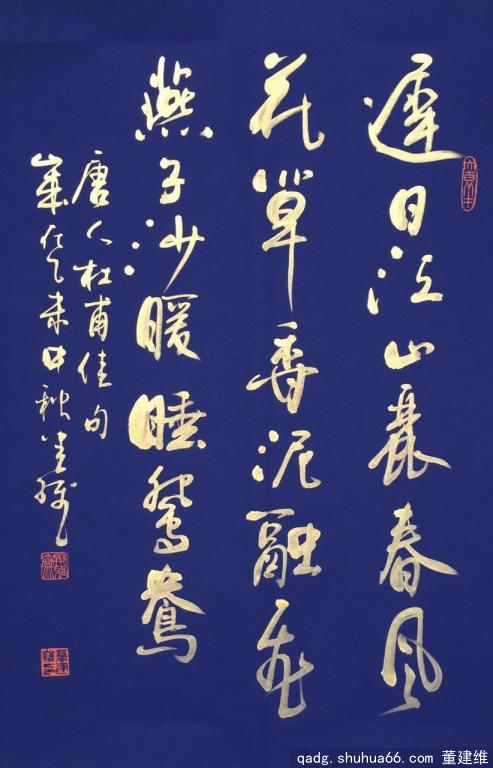 遲日江山麗春風
花草香泥融飛
燕子沙暖睡鴛鴦
唐人杜甫佳句
歲在乙未中秋建維
qadg. shuhua66. com 董建维